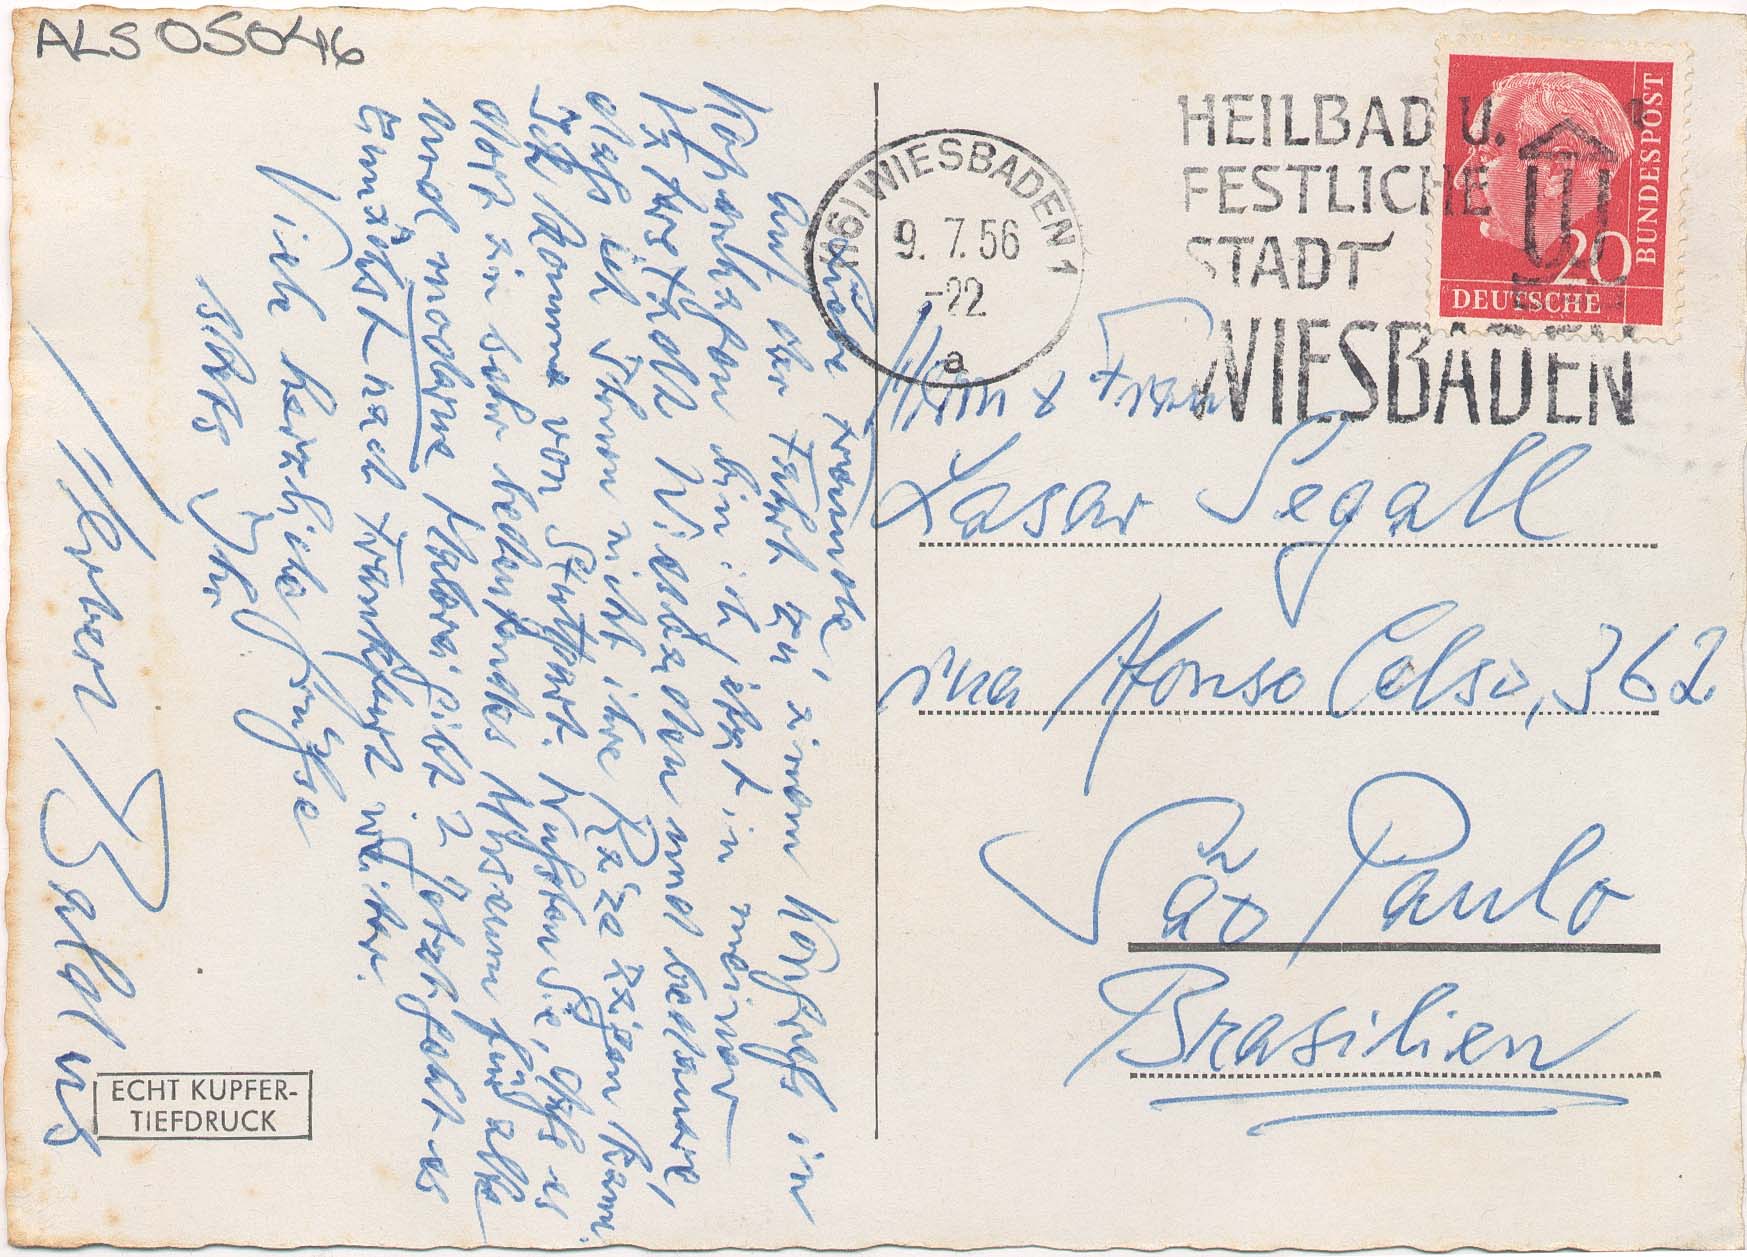 ALS 05046
Liebe Freunde,
auf der Fahrt zu einem Kongress in
Kopenhagen bin ich jetzt in meiner
Vaterstadt Wiesbaden und bedaure,
dass ich Ihnen nicht ihre Reize zeigen kann.
Ich komme von Stuttgart. Wussten Sie, dass es
dort ein sehr bedeutendes Museum für alte
und moderne Malerei gibt? Jetzt geht es
zunächst nach Frankfurt weiter.
Viele herzliche Grüsse
stets Ihr
Herbert Baldus
ECHT KUPFER-
TIEFDRUCK
(16) WIESBADEN 1
9. 7. 56
-22
a
HEILBAD U.
FESTLICHE
STADT
WIESBADEN
20
DEUTSCHE
BUNDESPOST
Herrn & Frau
Lasar Segall
rua Afonso Celso, 362
São Paulo
Brasilien